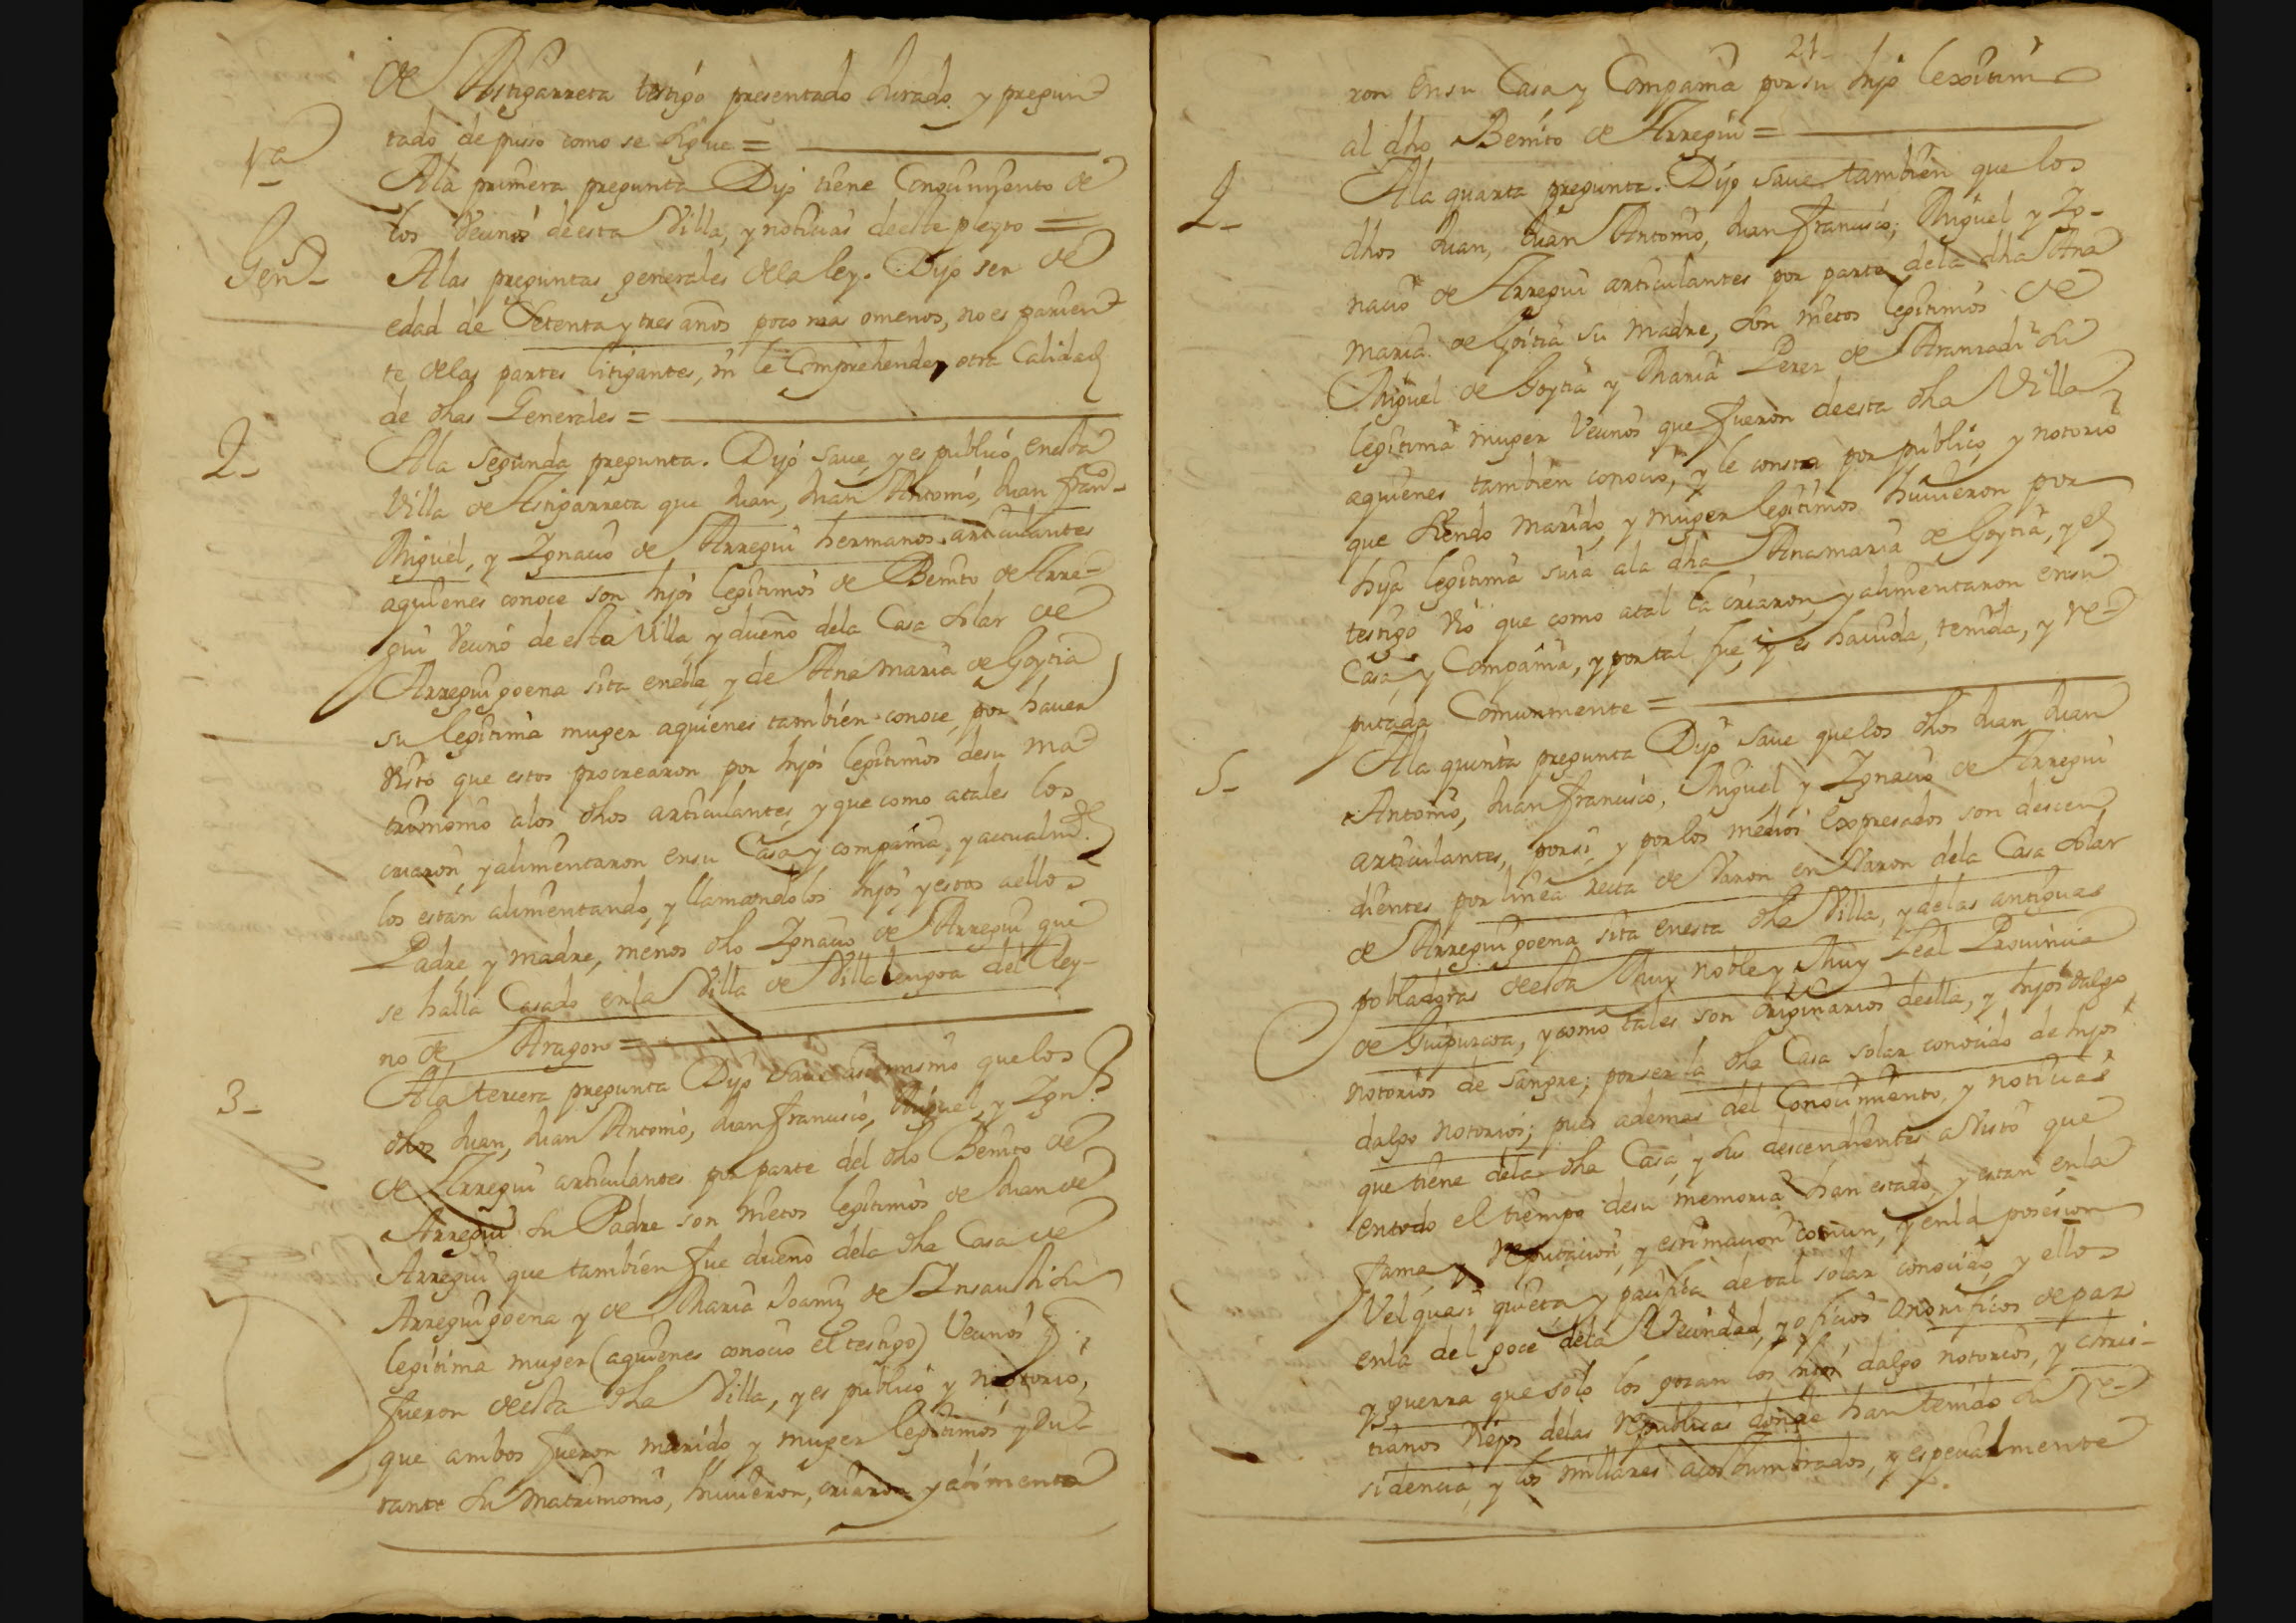 de Astigarreta testigo presentado Jurado y pregun
tado depuso como se sigue =
1ª
Ala primera pregunta Dijo tiene Conocimyento de
los Vecinos de esta Villa, y noticias de este pleyto =
Gen
Alas preguntas generales dela ley. Dijo ser de
edad de Setenta y tres años poco mas omenos, no es parien
te delas partes litigantes, ni le Comprehenden otra Calidad
de dhas Generales =
2-
Ala segunda pregunta. Dijo saue, y es publico enesta
Villa de Astigarreta que Juan, Juan Antonio, Juan Fran-
Miguel, y Ignacio de Arregui hermanos articulantes
aquienes conoce son hijos legitimos de Benito de Arre-
gui Vecino de esta Villa y dueño dela Casa solar de
Arreguigoena sita enella y de Ana maria de Goytia
su legitima muger aquienes tambien conoce, por hauer
visto que estos procrearon por hijos legitimos desu ma
trimonio alos dhos articulantes, y que como atales los
criaron y alimentaron ensu Casa y compañia, y actualmte
los están alimentando, y llamandolos hijos, y estos aellos
Padre y madre, menos dho Ignacio de Arregui que
se halla Casado enla Villa de Villaluengoa del Rey-
no de Aragon =
3-
Ala tercera pregunta Dijo saue assimismo que los
dhos Juan, Juan Antonio, Juan francisco, Miguel, y Ign
de Arregui articulantes por parte del dho Benito de
Arregui su Padre son nietos legitimos de Juan de
Arregui que tambien fue dueño dela dha Casa de
Arreguigoena y de Maria Joaniz de Insausti su
legitima muger (aquienes conocio el testigo) Vecinos q
fueron de esta dha Villa, y es publico y notorio,
que ambos fueron marido y muger legitimos y du-
rante su matrimonio, huuieron, criaron y alimenta
21
ron ensu Casa y Compañia por su hijo lexitimo
al dho Benito de Arregui =
4-
Ala quarta pregunta. Dijo saue tambien que los
dhos Juan, Juan Antonio, Juan francisco, Miguel y Ig-
nacio de Arregui articulantes por parte dela dha Ana
maria de Goitia su madre, son nietos legitimos de
Miguel de Goytia y Maria Perez de Aranzadi su
legitima muger Vecinos que fueron de esta dha Villa
aquienes tambien conocio, y le consta por publico y notorio
que siendo marido, y muger legitimos huuieron por
hija legitima suia ala dha Anamaria de Goytia, y el
testigo vio que como atal la criaron, y alimentaron ensu
Casa y Compañia, y por tal fue y es hauida, tenida, y re-
putada Comunmente =
5-
Ala quinta pregunta Dijo saue quelos dhos Juan, Juan
Antonio, Juan francisco, Miguel y Ignacio de Arregui
articulantes, por si, y por los medios expresados son descen
dientes por linea recta de Varon en Varon dela Casa solar
de Arreguigoena sita enesta dha Villa, y delas antiguas
pobladoras de esta Muy noble y Muy Leal Prouincia
de Guipuzcoa, y como tales son originarios deella, y hijosdalgo
notorios de sangre; por ser la dha Casa solar conocido de hijos
dalgo notorios; pues ademas del Conocimiento, y noticias
que tiene dela dha Casa, y sus descendientes a visto que
entodo el tiempo desu memoria han estado, y estan enla
fama, y reputacion, y estimacion comun, y enla posesion
Vel quasi quieta y pacifica de tal solar conocido, y ellos
enla del goce dela Vecindad, y oficios Onorificos de paz
y guerra que solo los gozan los hijos dalgo notorios, y chris-
tianos viejos delas Republicas donde han tenido su re-
sidencia, y los millares acostumbrados, y especialmente